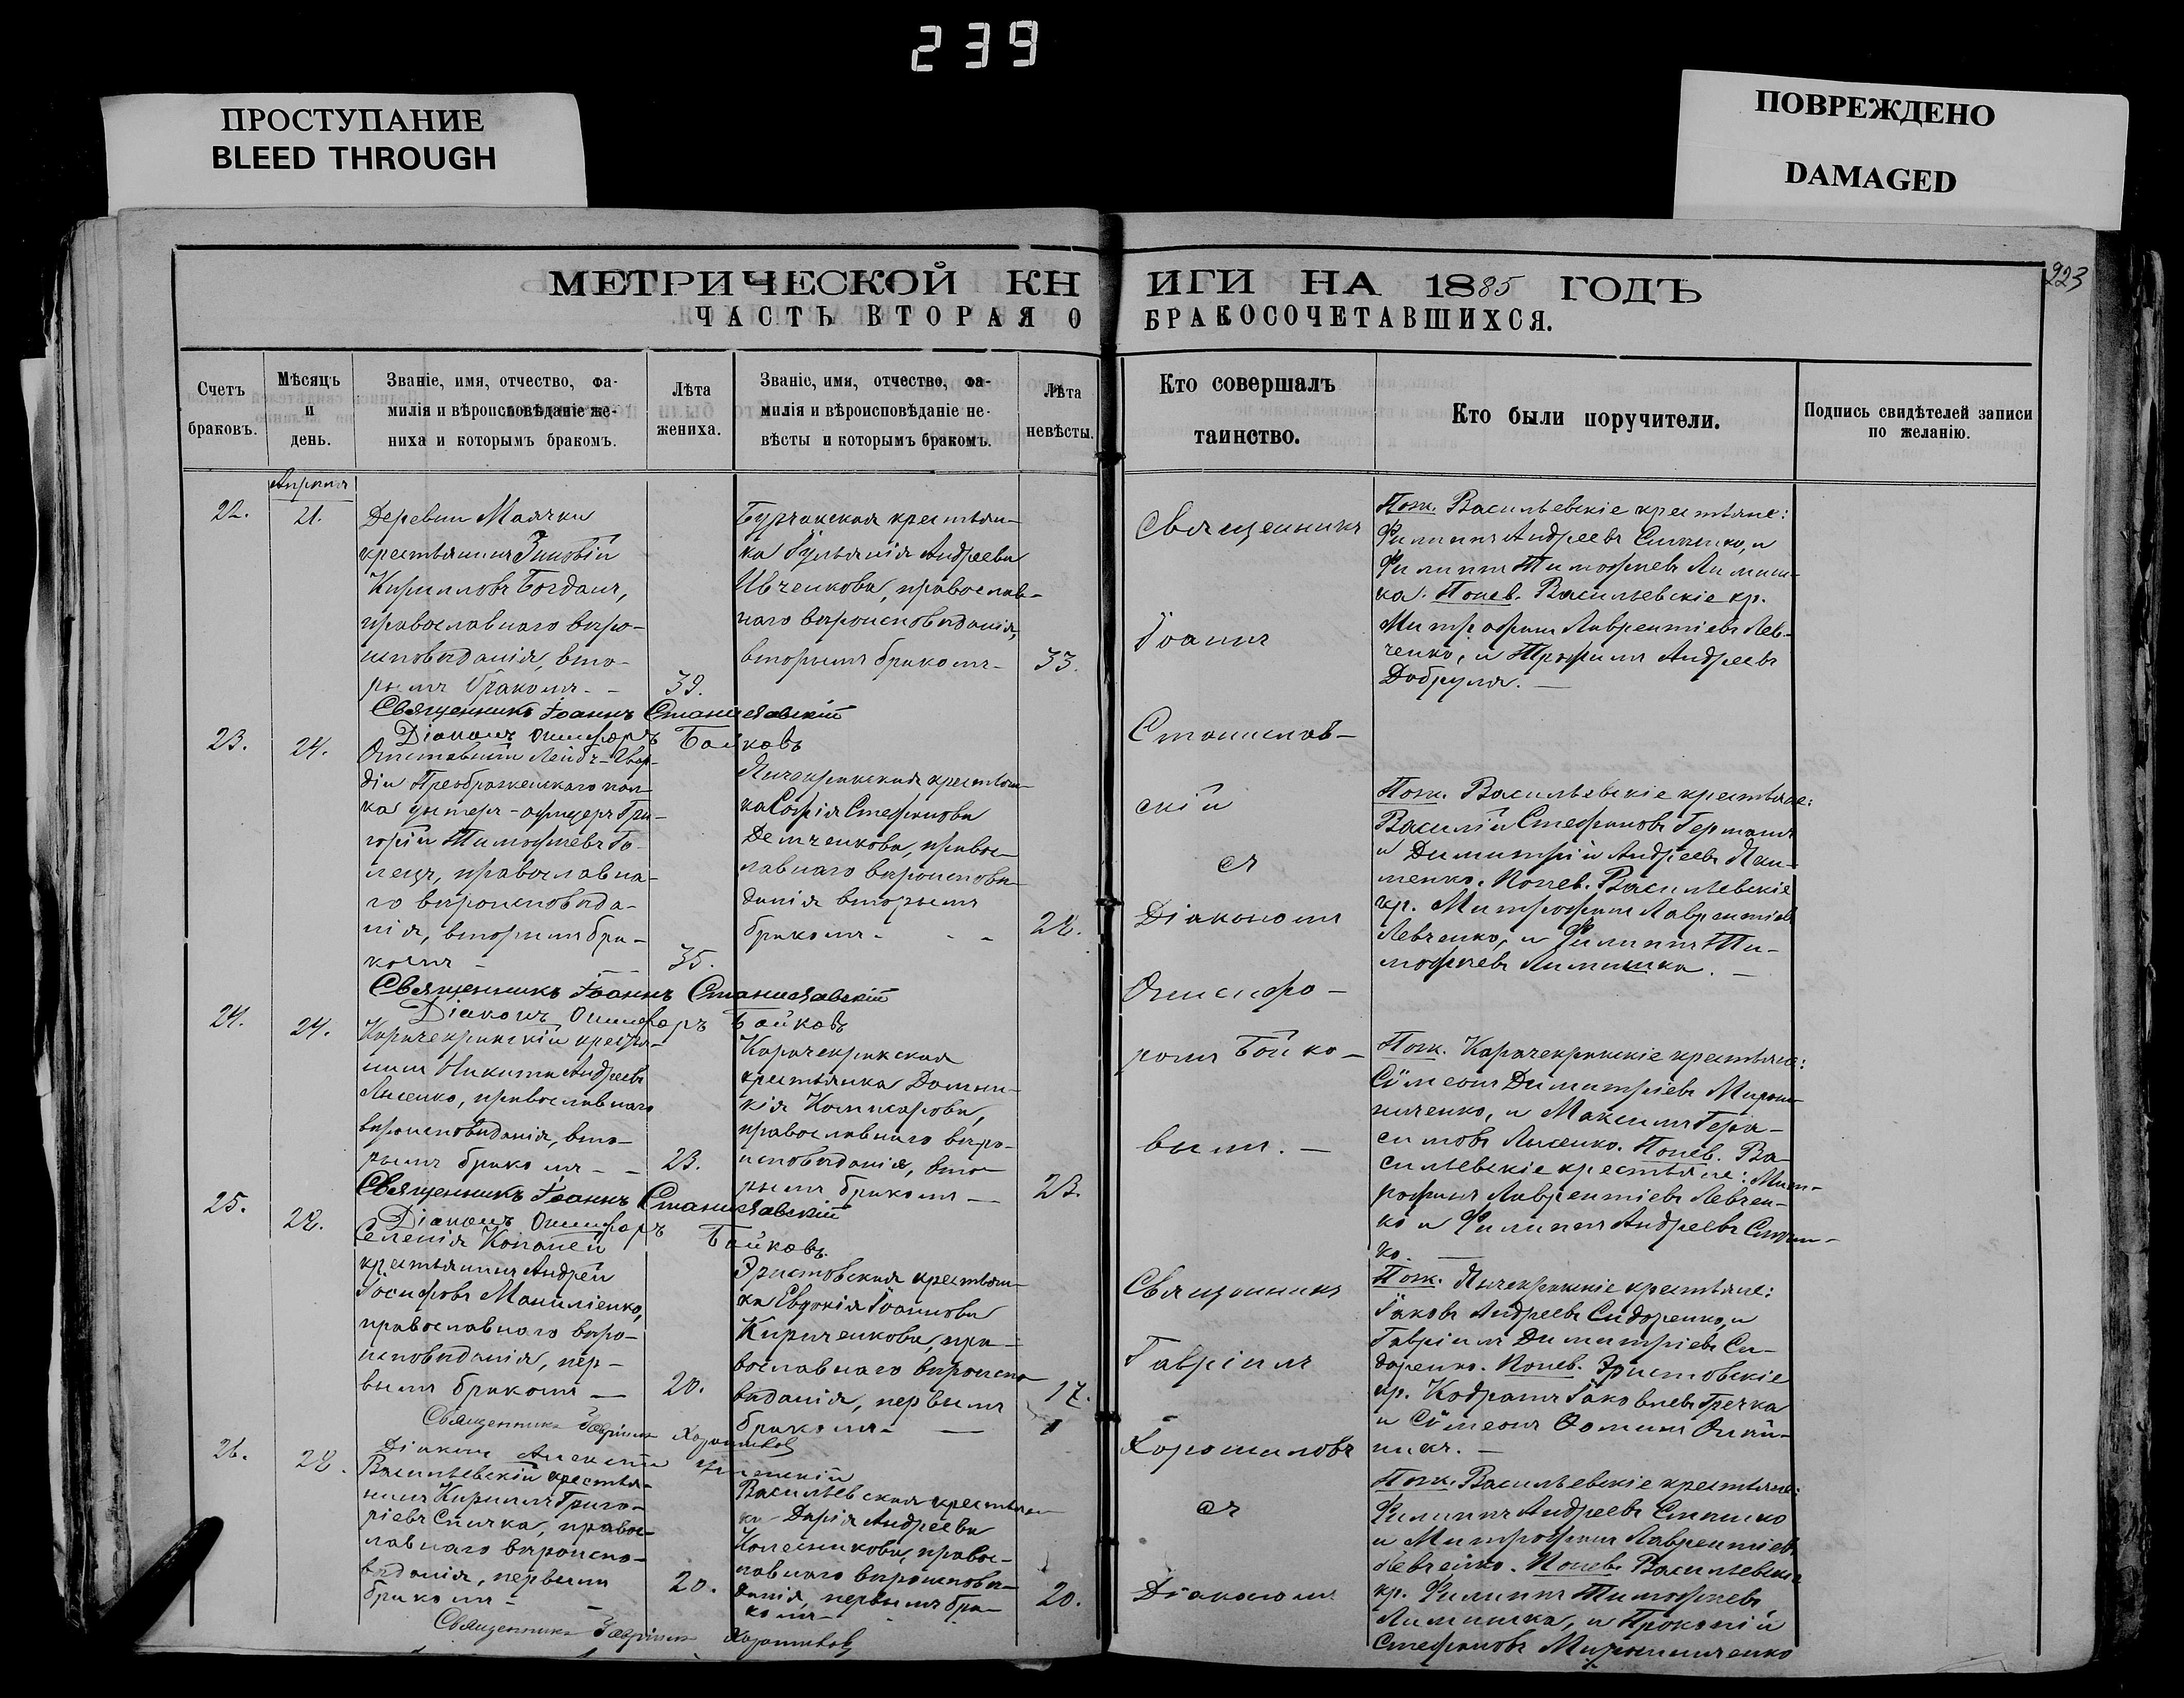 239
ПРОСТУПАНИЕ
BLEED THROUGH
ПОВРЕЖДЕНО
DAMAGED
223
МЕТРИЧЕСКОЙ КНИГИ НА 1885 ГОДЪ
ЧАСТЬ ВТОРАЯ О БРАКОСОЧЕТАВШИХСЯ.
Счетъ
браковъ.
Мѣсяцъ
и
день.
Званіе, имя, отчество, фа-
милія и вѣроисповѣданіе же-
ниха и которымъ бракомъ.
Лѣта
жениха.
Званіе, имя, отчество, фа-
милія и вѣроисповѣданіе не-
вѣсты и которымъ бракомъ.
Лѣта
невѣсты.
Кто совершалъ
таинство.
Кто были поручители.
Подпись свидѣтелей записи
по желанію.
Апрѣля
22.
21.
Деревни Маячки
крестьянинъ Зиновій
Кирилловъ Богданъ,
православнаго вѣро-
исповѣданія, вто-
рымъ бракомъ - -
39.
Бурчакская крестьян-
ка Іуліанія Андреева
Ивченкова, православ-
наго вѣроисповѣданія,
вторымъ бракомъ -
33.
Священникъ
Іоаннъ
Станислав-
скій
съ
Діакономъ
Онисифо-
ромъ Бойко-
вымъ. -
Пож. Васильевскіе крестьяне:
Филиппъ Андреевъ Симненко, и
Филиппъ Тимофеевъ Лимиш-
ка. Понев. Васильевскіе кр.
Митрофанъ Лаврентіевъ Лев-
ченко, и Трофимъ Андреевъ
Добруля. -
Священникъ Іоаннъ Станиславскій
Діаконъ Онисифоръ Бойковъ
23.
24.
Отставный Лейбъ-Гвар-
діи Преображенскаго пол-
ка унтеръ-офицеръ Гри-
горій Тимофеевъ Га-
лецъ, православна-
го вѣроисповѣда-
нія, вторымъ бра-
комъ -
35.
Янчекракская крестьян-
ка Софія Стефанова
Демченкова, право-
славнаго вѣроисповѣ-
данія вторымъ
бракомъ - - -
28.
Пож. Васильевскіе крестьяне:
Василій Стефановъ Германъ
и Димитрій Андреевъ
менко. Понев. Васильевскіе
кр. Митрофанъ Лаврентіевъ
Левченко, и Филиппъ Ти-
мофеевъ Лимишка. -
Священникъ Іоаннъ Станиславскій
Діаконъ Онисифоръ Бойковъ
24.
24.
Карачекракскій крестья-
нинъ Никита Андреевъ
Лысенко, православнаго
вѣроисповѣданія, вто-
рымъ бракомъ - -
23.
Карачекракская
крестьянка Домни-
кія Комисарова,
православнаго вѣро-
исповѣданія, вто-
рымъ бракомъ -
23.
Пож. Карачекракскіе крестьяне:
Сѵмеонъ Димитріевъ Мирош-
ниченко, и Максимъ Гера-
симовъ Лысенко. Понев. Ва-
сильевскіе крестьяне: Мит-
рофанъ Лаврентіевъ Левчен-
ко и Филиппъ Андреевъ
ко. -
Священникъ Іоаннъ Станиславскій
Діаконъ Онисифоръ Бойковъ
25.
28.
Селенія Копаней
крестьянинъ Андрей
Іосифовъ Маниліенко,
православнаго вѣро-
исповѣданія, пер-
вымъ бракомъ -
20.
Эристовская крестьян-
ка Евдокія Іоаннова
Кириченкова, пра-
вославнаго вѣроиспо-
вѣданія, первымъ
бракомъ -
17.
Священникъ
Гавріилъ
Хорошиловъ
съ
Діакономъ
Пож. Янчекракскіе крестьяне:
Іаковъ Андреевъ Сидоренко, и
Гавріилъ Димитріевъ Си-
доренко. Понев. Эристовскіе
кр. Кодратъ Іаковлевъ Гречка
и Сѵмеонъ Ѳоминъ
Священникъ Гавріилъ Хорошиловъ
Діаконъ Алексѣй
26.
28.
Васильевскій крестья-
нинъ Кириллъ Григо-
ріевъ Спичка, право-
славнаго вѣроиспо-
вѣданія, первымъ
бракомъ -
20.
Васильевская крестьян-
ка Дарія Андреева
Колесникова, право-
славнаго вѣроисповѣ-
данія, первымъ бра-
комъ -
20.
Пож. Васильевскіе крестьяне:
Филиппъ Андреевъ
и Митрофанъ Лаврентіевъ
Левченко. Понев. Васильевскіе
кр. Филиппъ Тимофеевъ
Лимишка, и Прокопій
Стефановъ Мирошниченко
Священникъ Гавріилъ Хорошиловъ